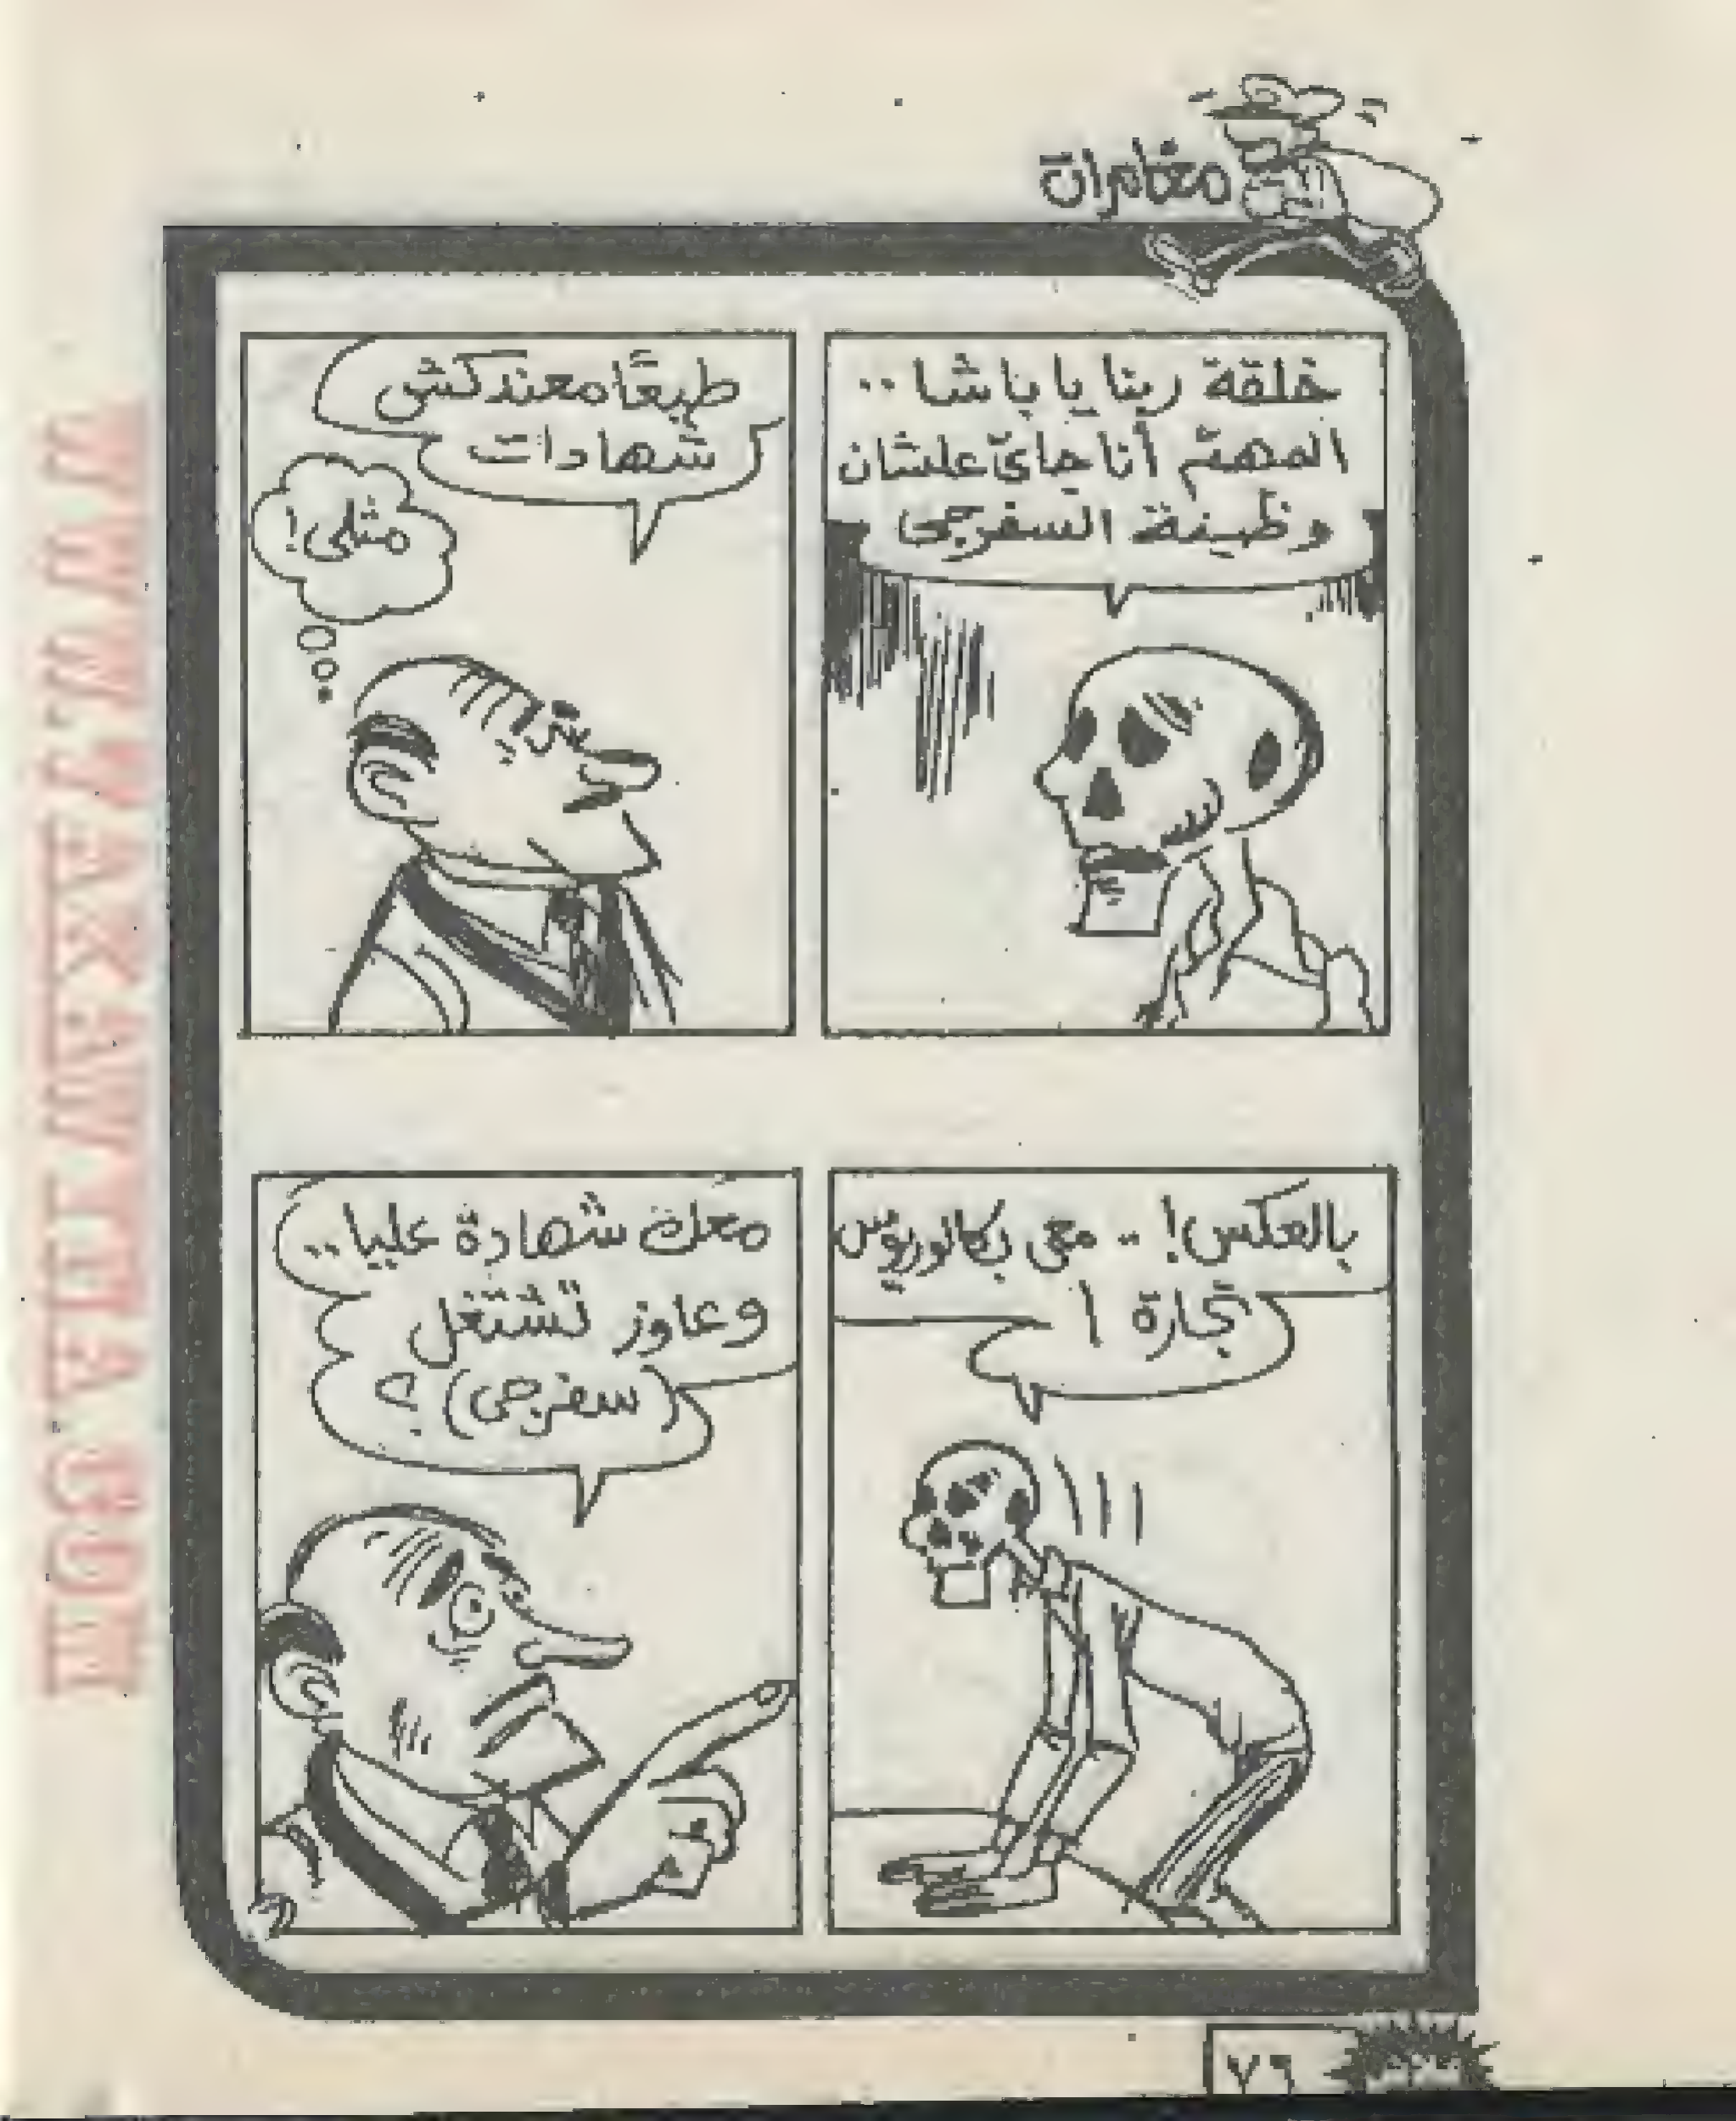 مغامرات
خلقة ربنا يا باشا ..
المهم أنا جاى علشان
وظيفة السفرجى
طبعًا معندكش
شهادات
مثلى!
بالعكس! .. معى بكالوريوس
تجارة !
معك شهادة عليا ..
وعاوز تشتغل
(سفرجى) ؟
٧٦